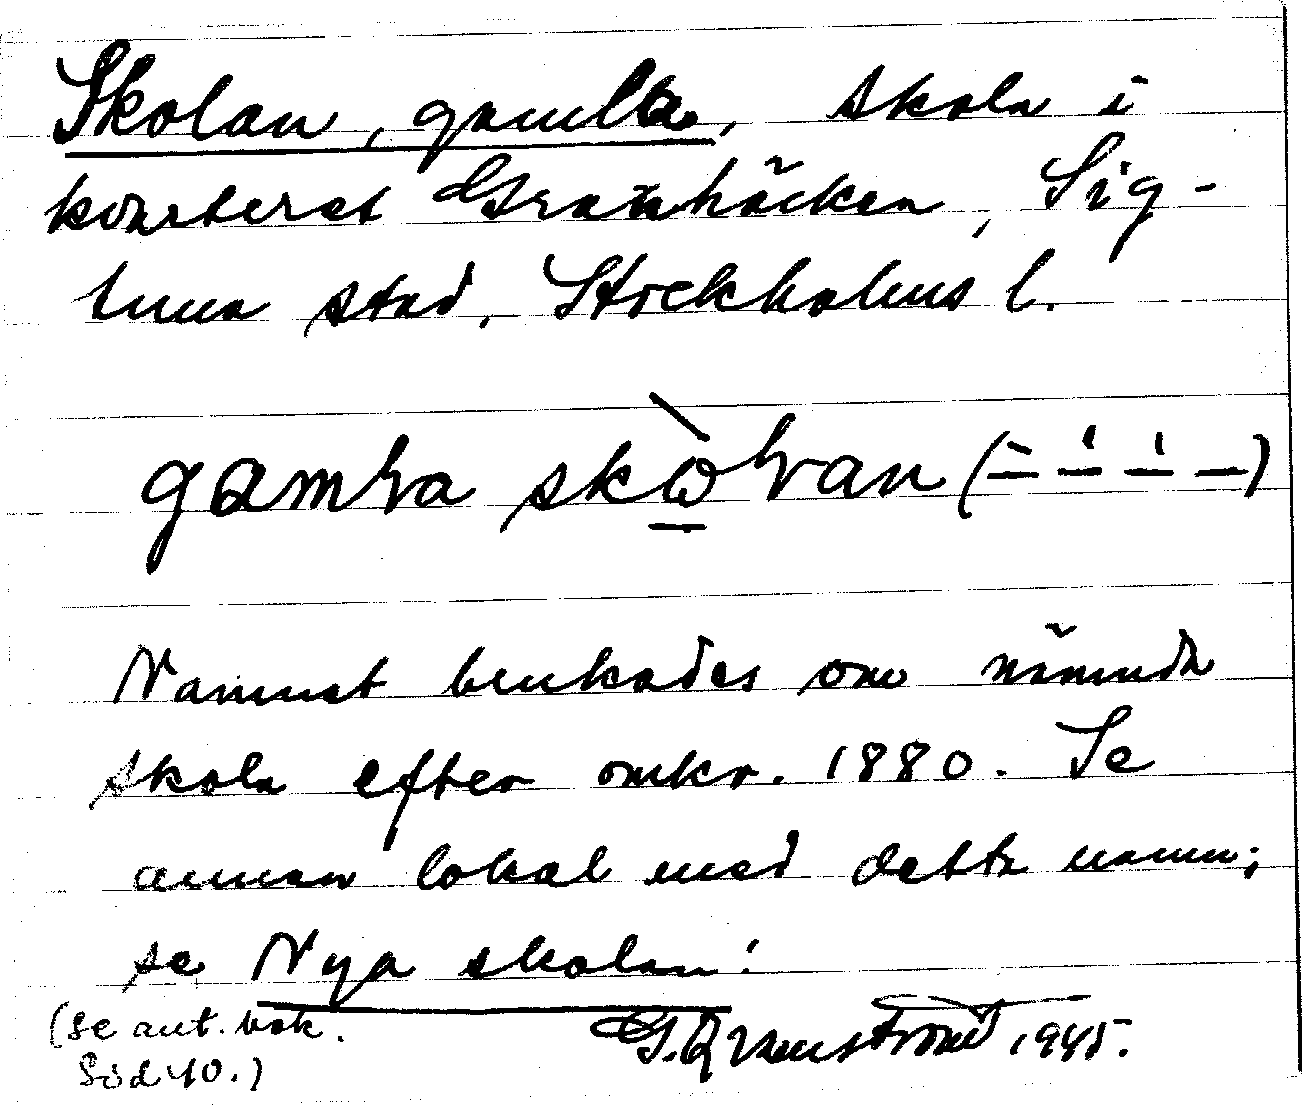 Skolan, gamla, skola i
kvarteret Granhäcken, Sig-
tuna stad, Stockholms l.
gamla skolan
Namnet brukades om nämnda
skola efter omkr. 1880. Se
annan lokal med detta namn;
se Nya skolan!
(Se ant. bok.
Sid 40.)
1945.